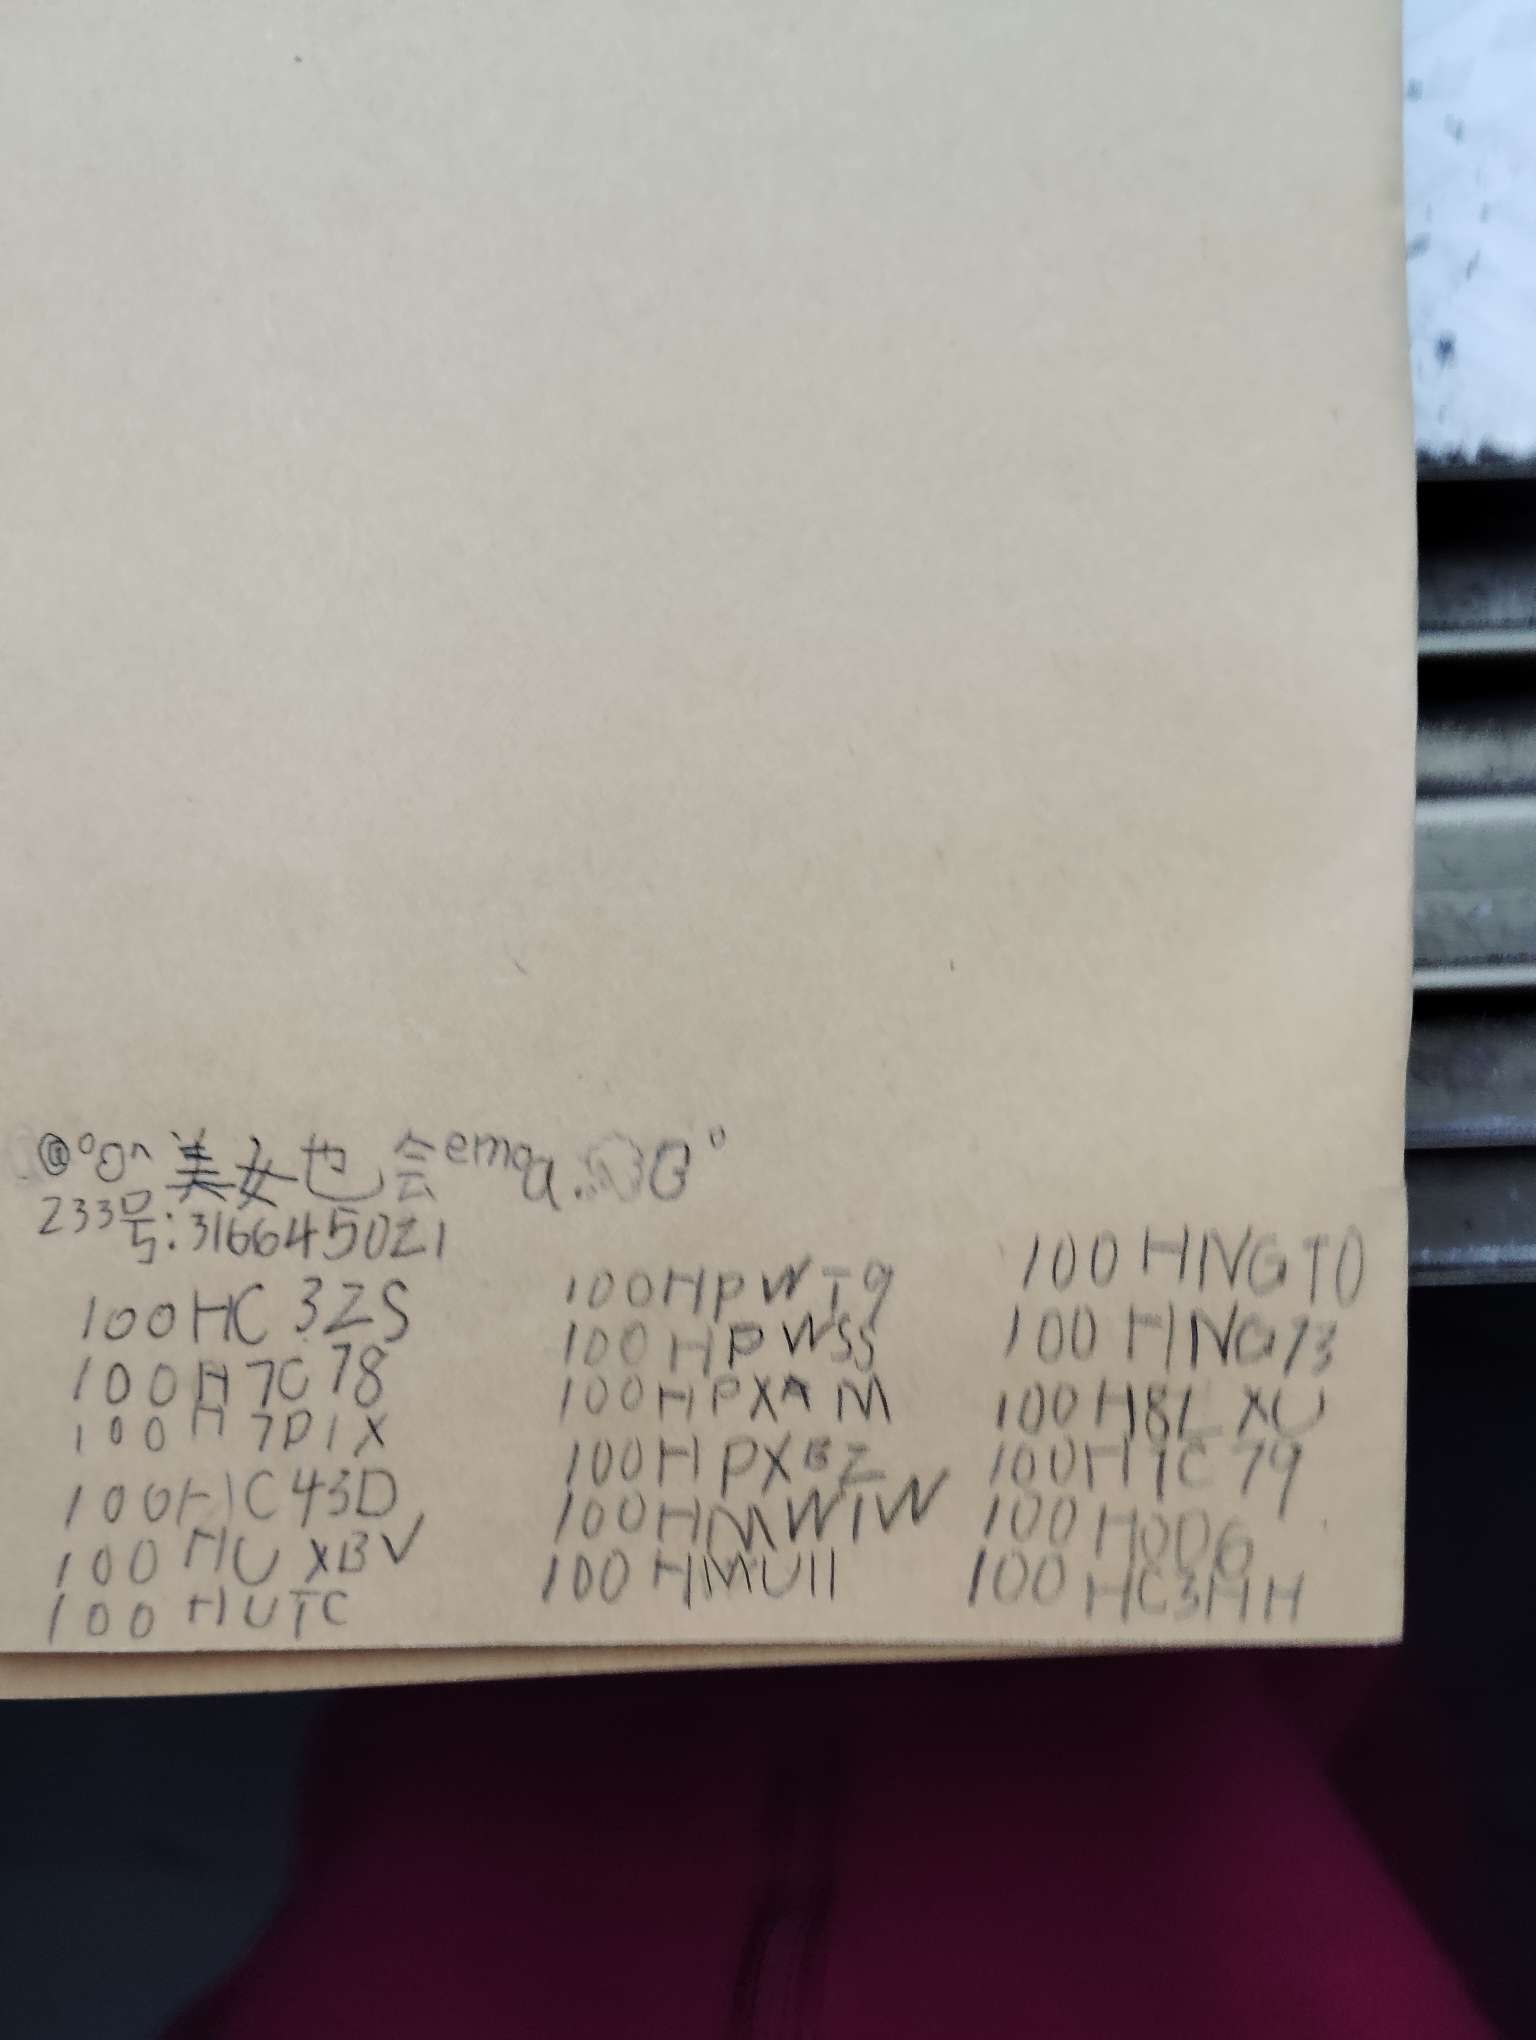 @°O^美女也会emqa.
233号:3166445021
100HC3ZS
100H7C78
100H7D1X
100HC43D
100HUXBV
100HUTC
100HPWT9
100HPWSS
100HPXAM
100HPXBZ
100HMW1W
100HMU11
100HNGT0
100HNG73
100H8LXU
100H7C79
100H0D6
100HC3HH